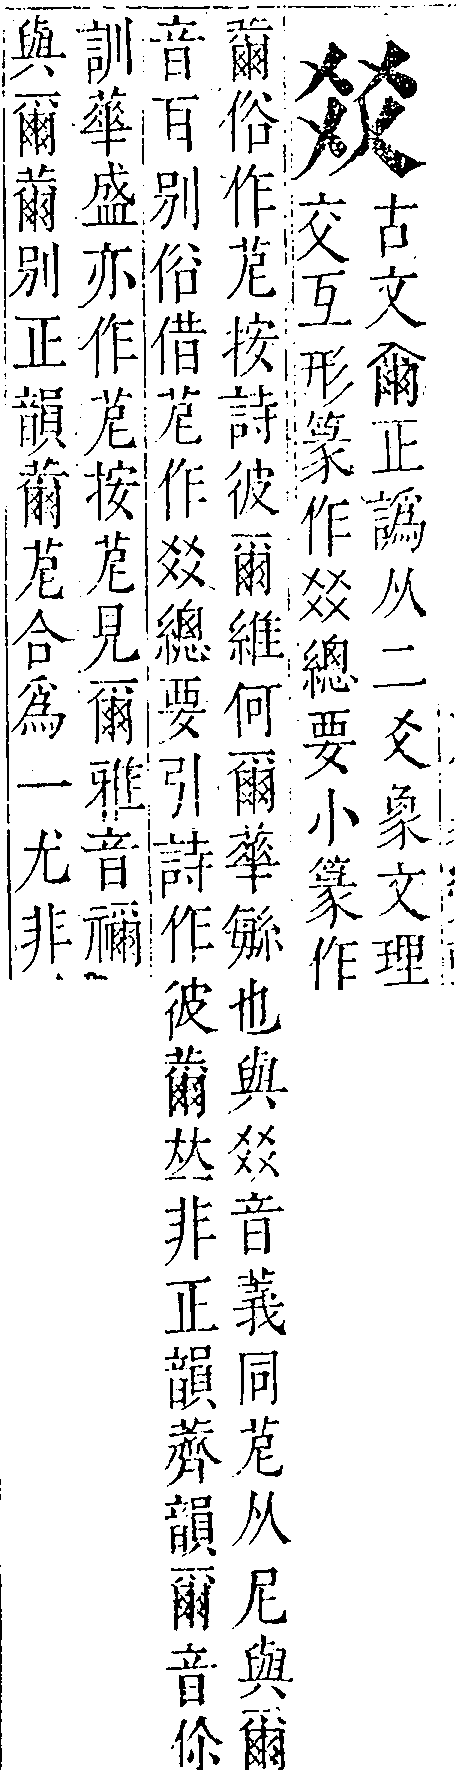 㸚
古文爾正譌从二爻象文理
交互形篆作㸚總要小篆作
薾俗作苨按詩彼爾維何爾華緐也與㸚音義同苨从尼與爾
音百别俗借苨作㸚總要引詩作彼薾𠀤非正韻薺韻爾音伱
訓華盛亦作苨按苨見爾雅音禰
與爾薾别正韻薾苨合爲一尤非